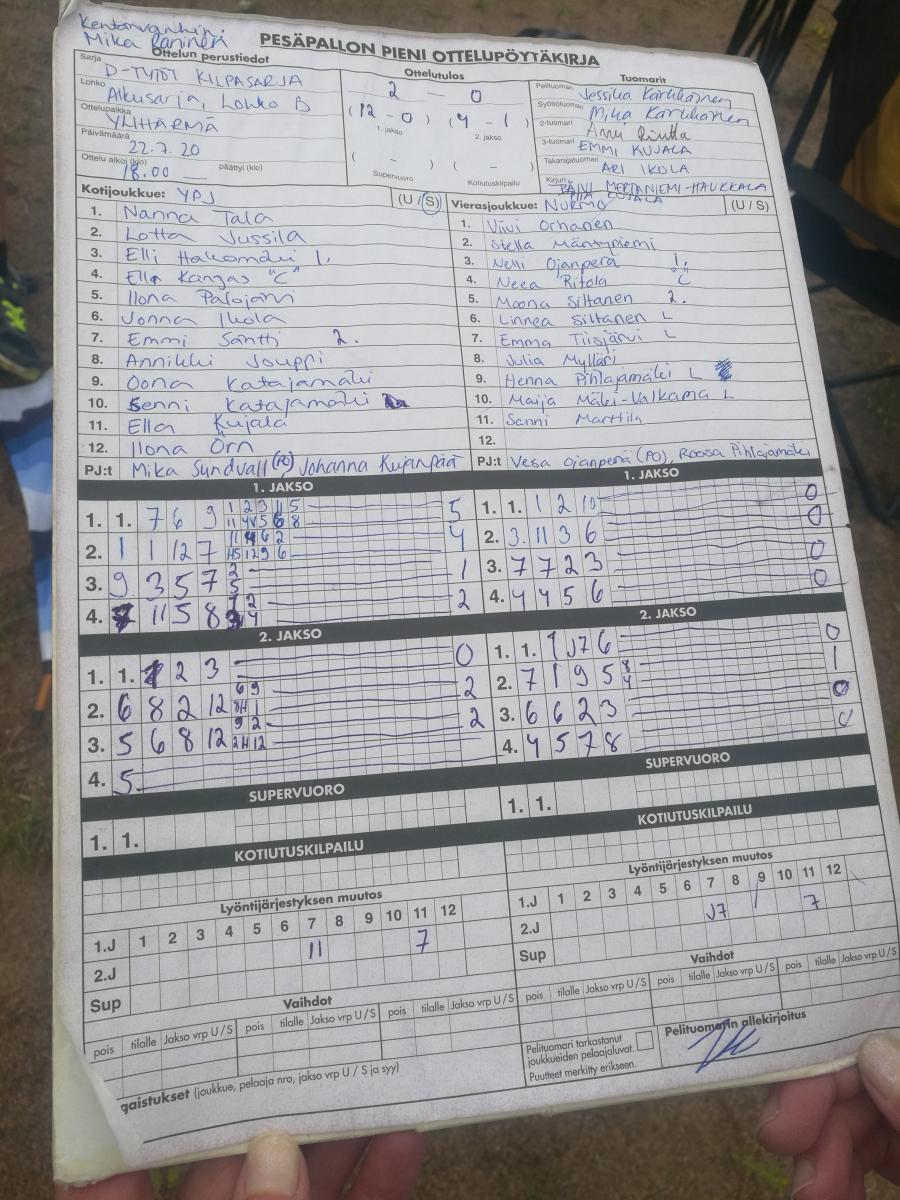 Kentänvanhin:
Mika Raninen
PESÄPALLON PIENI OTTELUPÖYTÄKIRJA
Ottelun perustiedot
Sarja D-TYTÖT KILPASARJA
Lohko Alkusarja, Lohko B
Ottelupaikka YLIHÄRMÄ
Päivämäärä 22.7.20
Ottelu alkoi (klo) 18.00 päättyi (klo)
Ottelutulos
2 - 0
(12 - 0) (4 - 1)
1. jakso 2. jakso
( - ) ( - )
Supervuoro Kotiutuskilpailu
Tuomarit
Pelituomari Jessika Karkkainen
Syöttötuomari Mika Karkkainen
2-tuomari Anni
3-tuomari EMMI KUJALA
Takarajatuomari ARI IKOLA
Kirjuri PÄIVI MERTANIEMI-HAUKKALA
KUJALA
Kotijoukkue: YPJ (U / S)
1. Nanna Tala
2. Lotta Jussila
3. Elli Hakomäki 1.
4. Ella Kangas "C"
5. Ilona Palojärvi
6. Jonna Ikola
7. Emmi Säntti 2.
8. Annikki Jouppi
9. Oona Katajamäki
10. Senni Katajamäki
11. Ella Kujala
12. Ilona Örn
PJ:t Mika Sundvall (PO) Johanna Kujanpää
Vierasjoukkue: NURMO (U / S)
1. Viivi Orhanen
2. Stella Mäntyniemi
3. Nelli Ojanperä 1.
4. Neea Ritola "C"
5. Moona Siltanen 2.
6. Linnea Siltanen L
7. Emma Tiisjärvi L
8. Julia Mylläri
9. Henna Pihlajamäki L
10. Maija Mäki-Valkama L
11. Sanni Marttila
12.
PJ:t Vesa Ojanperä (PO), Roosa Pihlajamäki
1. JAKSO
1. 1. 7 6 9 5
2. 1 1 12 7 4
3. 9 3 5 7 2 5 1
4. 11 5 8 2
1. JAKSO
1. 1. 1 2 10 0
2. 3. 11 3 6 0
3. 7 7 2 3 0
4. 4 4 5 6 0
2. JAKSO
1. 1. 2 3 0
2. 6 8 2 12 2
3. 5 6 8 12 2
4. 5
2. JAKSO
1. 1. 1 J7 6 0
2. 7 1 9 5 8 4 1
3. 6 6 2 3 0
4. 4 5 7 8 0
SUPERVUORO
1. 1.
SUPERVUORO
1. 1.
KOTIUTUSKILPAILU
KOTIUTUSKILPAILU
Lyöntijärjestyksen muutos
1.J 1 2 3 4 5 6 7 8 9 10 11 12
11 7
2.J
Sup
Lyöntijärjestyksen muutos
1.J 1 2 3 4 5 6 7 8 9 10 11 12
2.J J7 7
Sup
Vaihdot
pois tilalle Jakso vrp U / S pois tilalle Jakso vrp U / S pois tilalle Jakso vrp U / S
Vaihdot
pois tilalle Jakso vrp U / S pois tilalle Jakso vrp U / S pois tilalle Jakso vrp U / S
gaistukset (joukkue, pelaaja nro, jakso vrp U / S ja syy)
Pelituomari tarkastanut
joukkueiden pelaajaluvat.
Puutteet merkitty erikseen.
Pelituomarin allekirjoitus